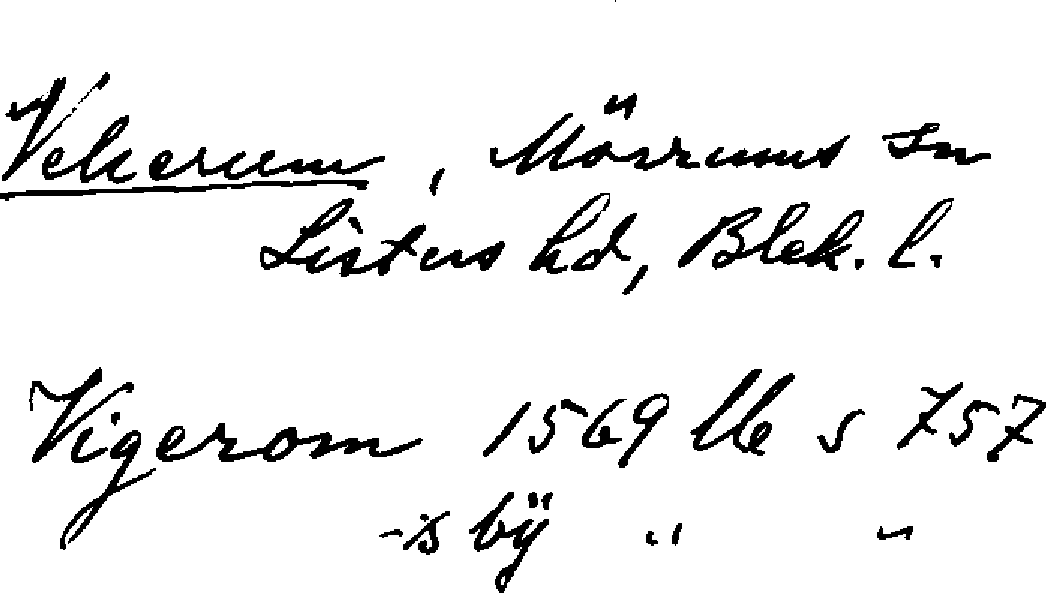 Vekerum, Mörrums sn
Listers hd, Blek. l.
Vigerom 1569 lb s 757
-s bÿ " "